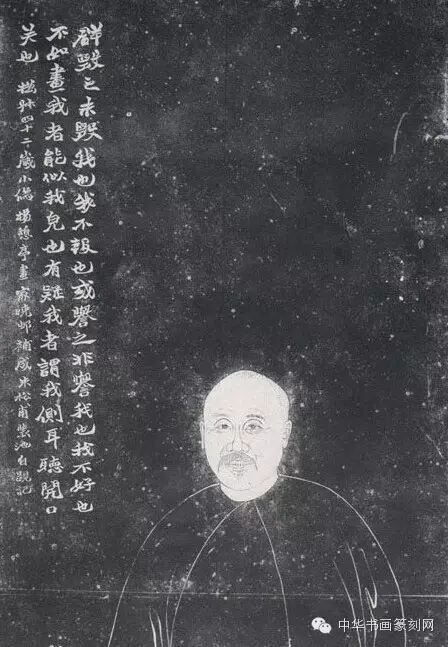 群毀之未毀我也我不報也或譽之非譽我也我不好也
不如畫我者能似我皃也有疑我者謂我側耳聽開口
笑也 撝叔四十二歲小像 楊憩亭畫 家曉邨補成 朱松甫裝池 自題記
中华书画篆刻网